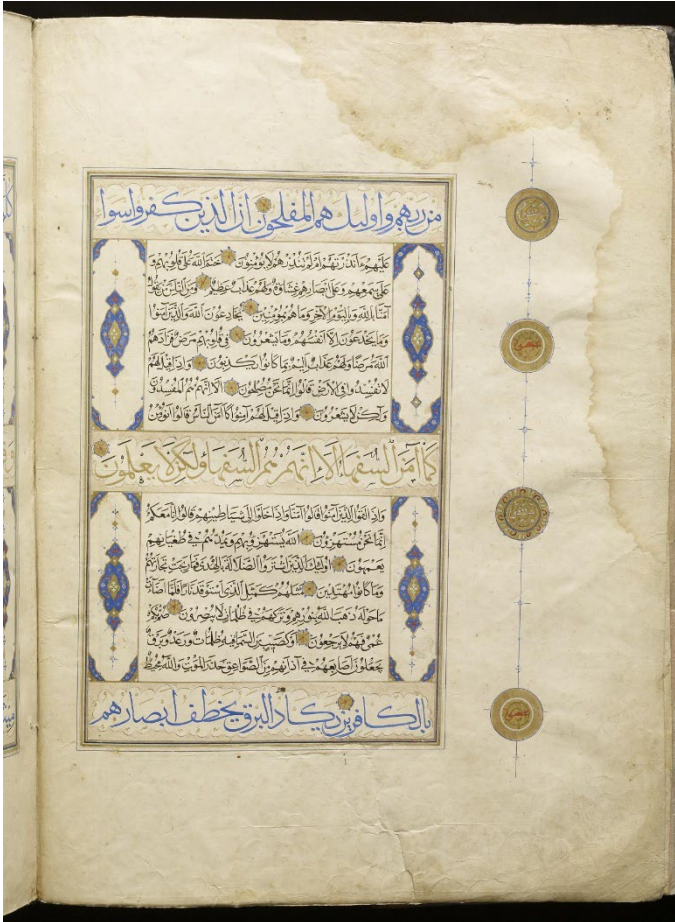 من ربهم واولئك هم المفلحون ان الذين كفروا سوا
عليهم ءانذرتهم ام لم تنذرهم لا يومنون ختم الله على قلوبهم و
على سمعهم وعلى ابصارهم غشاوة ولهم عذاب عظيم ومن الناس من يقول
آمنا بالله وباليوم الآخر وما هم بمومنين يخادعون الله والذين آمنوا
وما يخدعون الا انفسهم وما يشعرون في قلوبهم مرض فزادهم
الله مرضا ولهم عذاب اليم بما كانوا يكذبون واذا قيل لهم
لا تفسدوا في الارض قالوا انما نحن مصلحون الا انهم هم المفسدون
ولكن لا يشعرون واذا قيل لهم آمنوا كما آمن الناس قالوا انومن
كما آمن السفهاء الا انهم هم السفهاء ولكن لا يعلمون
واذا لقوا الذين آمنوا قالوا آمنا واذا خلوا الى شياطينهم قالوا انا معكم
انما نحن مستهزون الله يستهزئ بهم ويمدهم في طغيانهم
يعمهون اولئك الذين اشتروا الضلالة بالهدى فما ربحت تجارتهم
وما كانوا مهتدين مثلهم كمثل الذي استوقد نارا فلما اضاءت
ما حوله ذهب الله بنورهم وتركهم في ظلمات لا يبصرون صم بكم
عمي فهم لا يرجعون او كصيب من السماء فيه ظلمات ورعد وبرق
يجعلون اصابعهم في آذانهم من الصواعق حذر الموت والله محيط
بالكافرين يكاد البرق يخطف ابصارهم